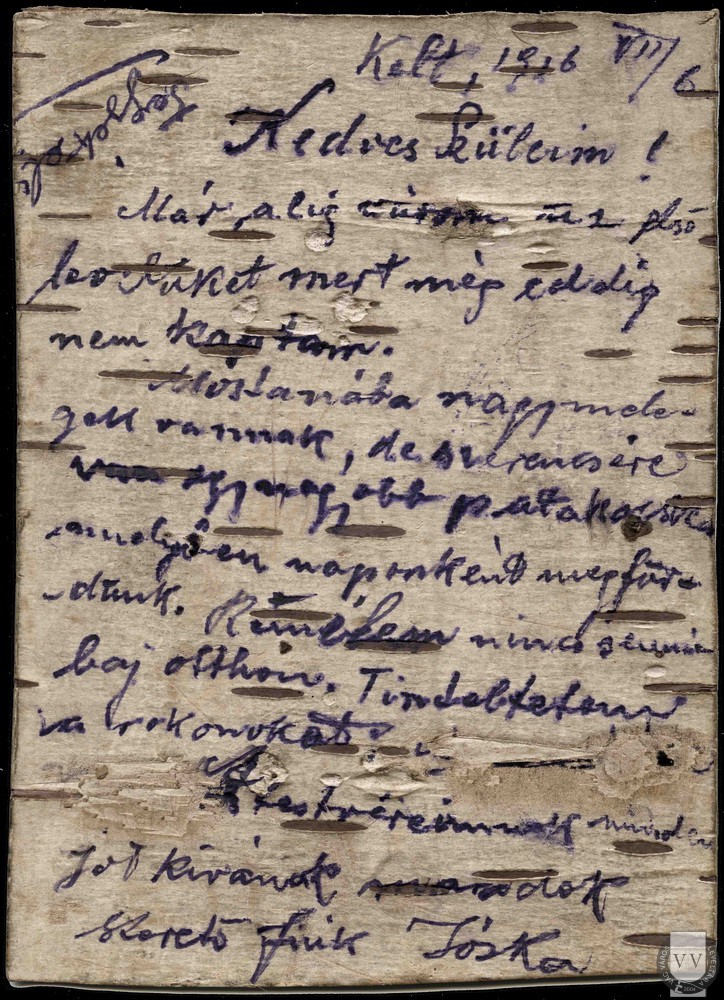 Kelt, 1916 VII/6
Kedves Szüleim!
Már alig várom az első
levelüket mert még eddig
nem kaptam.
Mostanába nagy mele-
gek vannak, de szerencsére
van egy nagyobb patakocska
amelyben naponként megfür-
dünk. Remélem nincs semmi
baj otthon. Tiszteltetem
a rokonokat.
A Testvéreimnek minden
jót kívánok maradok
szerető fiuk Jóska
VV